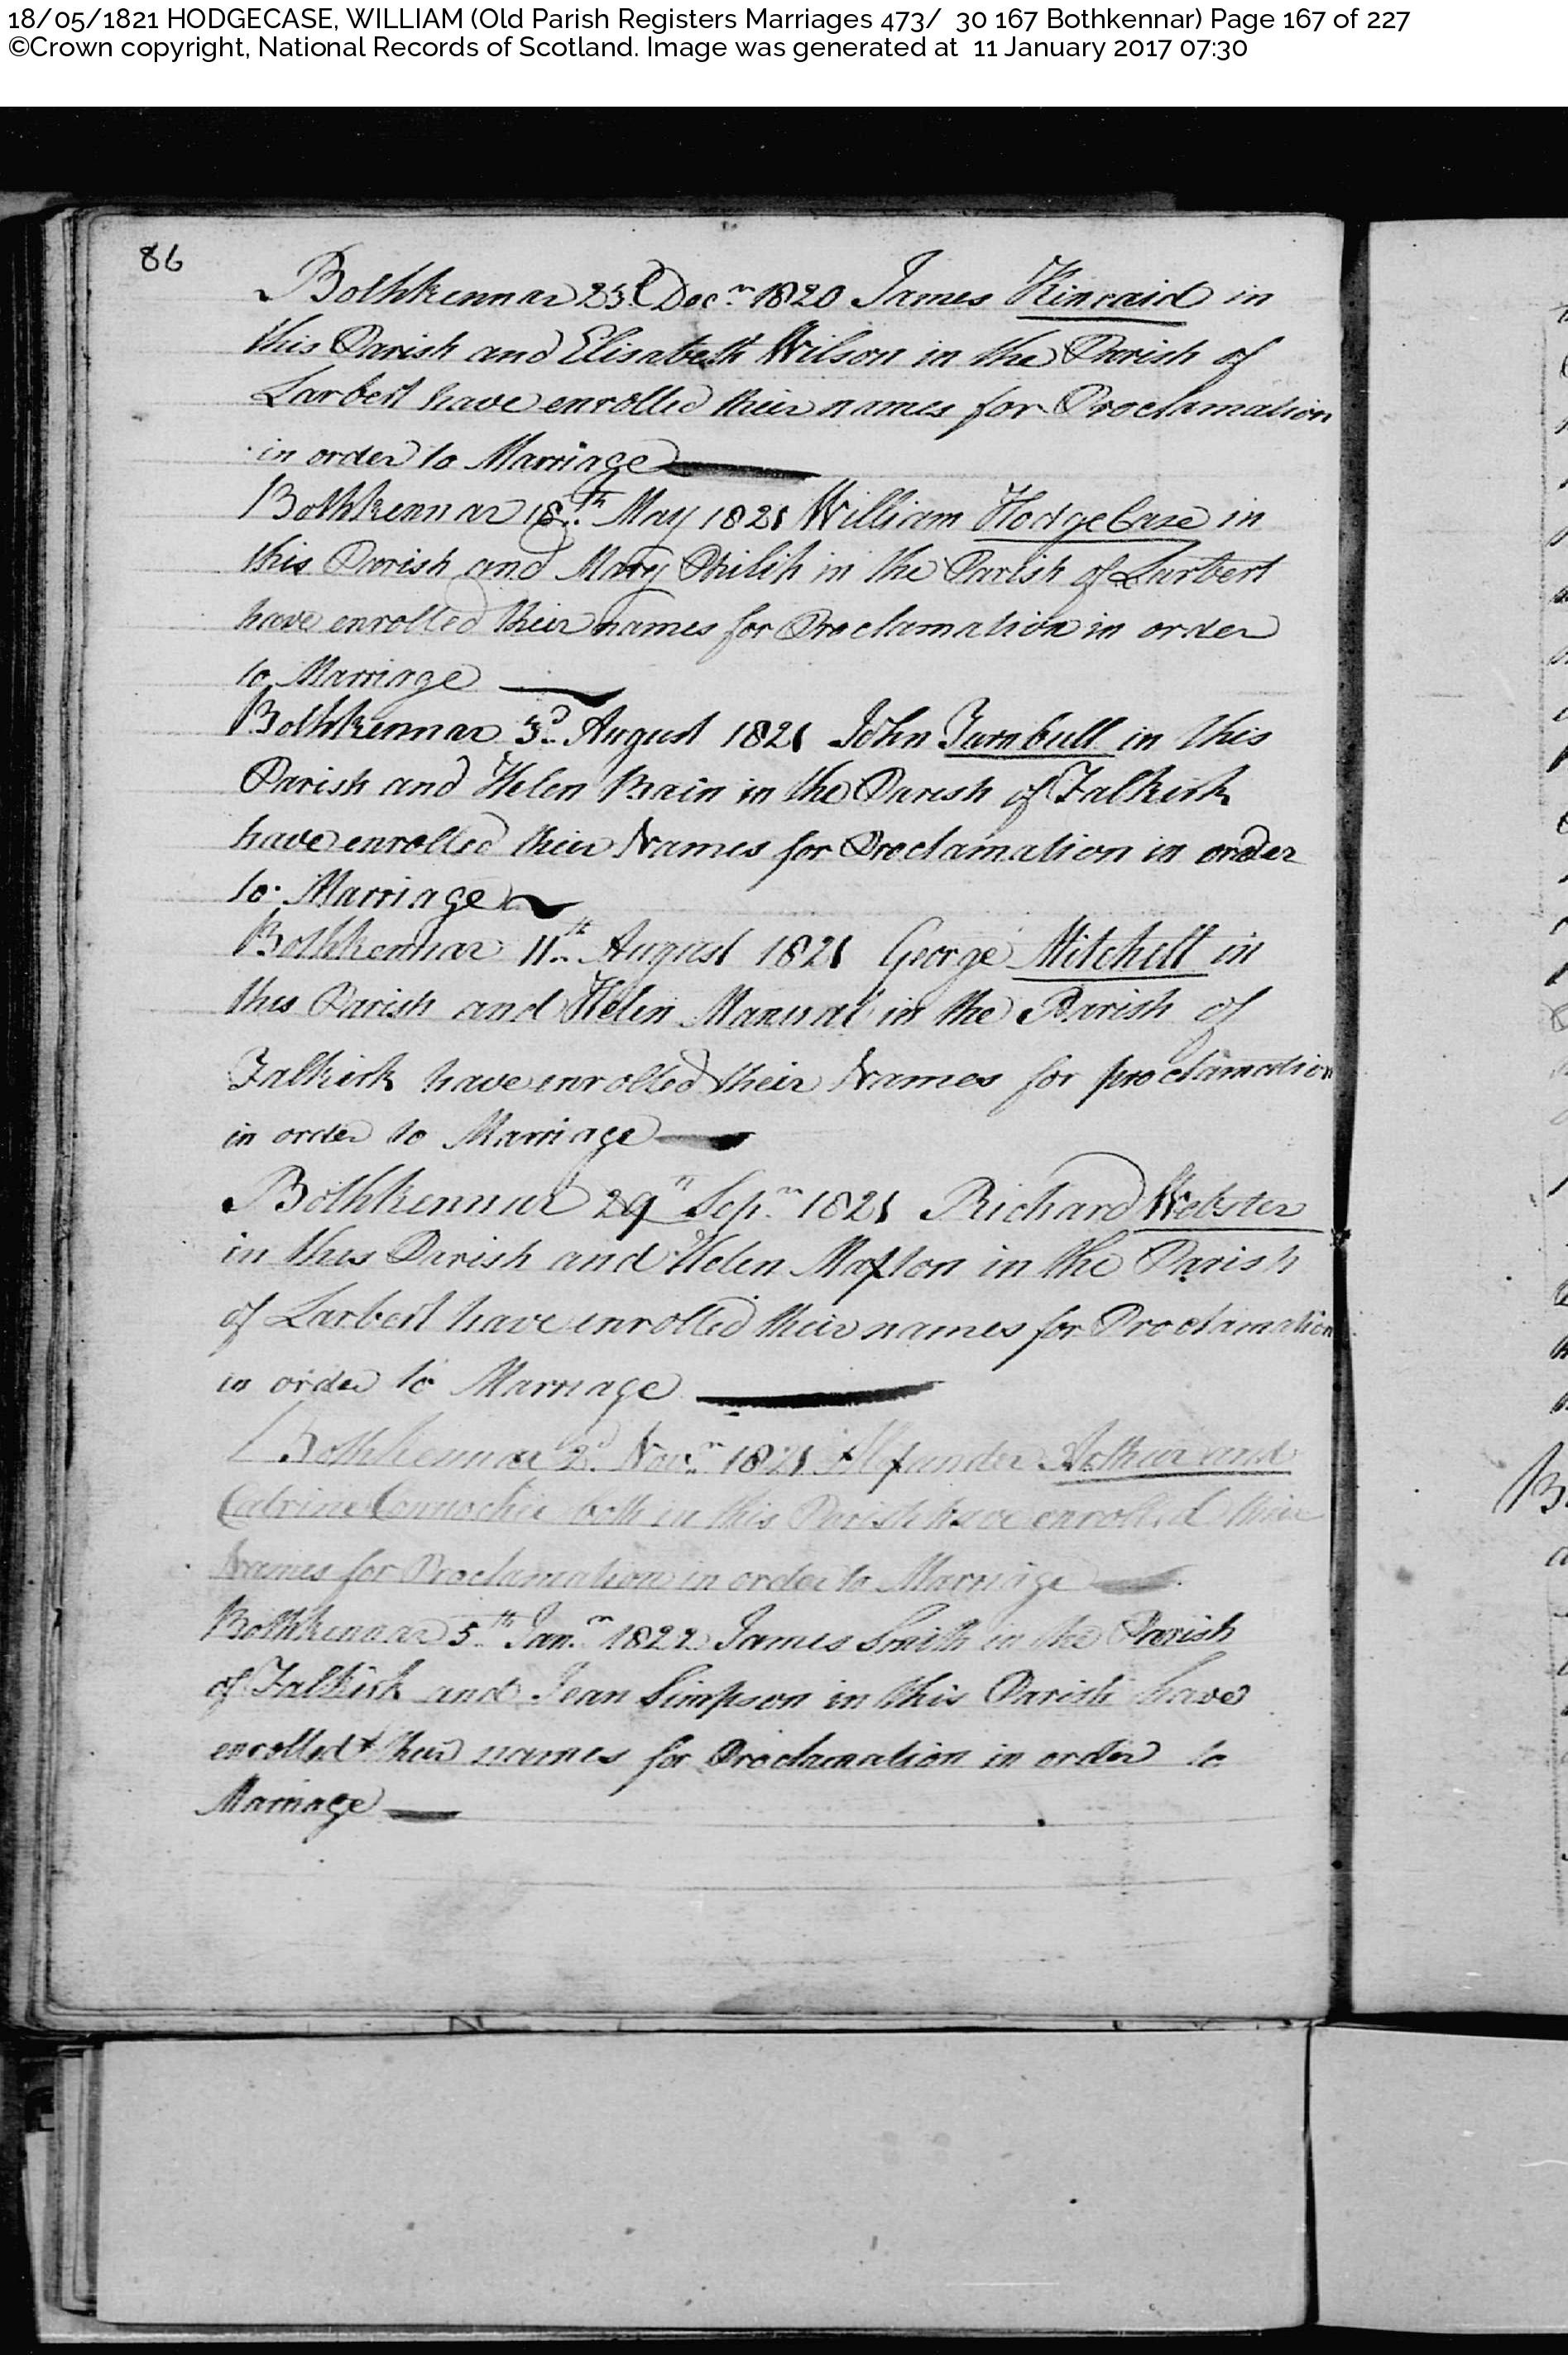 18/05/1821 HODGECASE, WILLIAM (Old Parish Registers Marriages 473/ 30 167 Bothkennar) Page 167 of 227
©Crown copyright, National Records of Scotland. Image was generated at 11 January 2017 07:30
86
Bothkennar 23d Decr 1820 James Kincaid in
this Parish and Elisabeth Wilson in the Parish of
Larbert have enrolled their names for Proclamation
in order to Marriage
Bothkennar 18th May 1821 William HodgeCase in
this Parish and Mary Philip in the Parish of Larbert
have enrolled their names for Proclamation in order
to Marriage
Bothkennar 3d August 1821 John Turnbull in this
Parish and Helen Bain in the Parish of Falkirk
have enrolled their Names for Proclamation in order
to Marriage
Bothkennar 11th August 1821 George Mitchell in
this Parish and Helen Manual in the Parish of
Falkirk have enrolled their Names for proclamation
in order to Marriage
Bothkennar 29th Sepr 1821 Richard Webster
in this Parish and Helen Maxton in the Parish
of Larbert have enrolled their names for Proclamation
in order to Marriage
Bothkennar 2d Novr 1821 Alexander Arthur and
Catrine Connochie both in this Parish have enrolled their
Names for Proclamation in order to Marriage
Bothkennar 5th Janr 1822 James Smith in the Parish
of Falkirk and Jean Simpson in this Parish have
enrolled their names for Proclamation in order to
Marriage